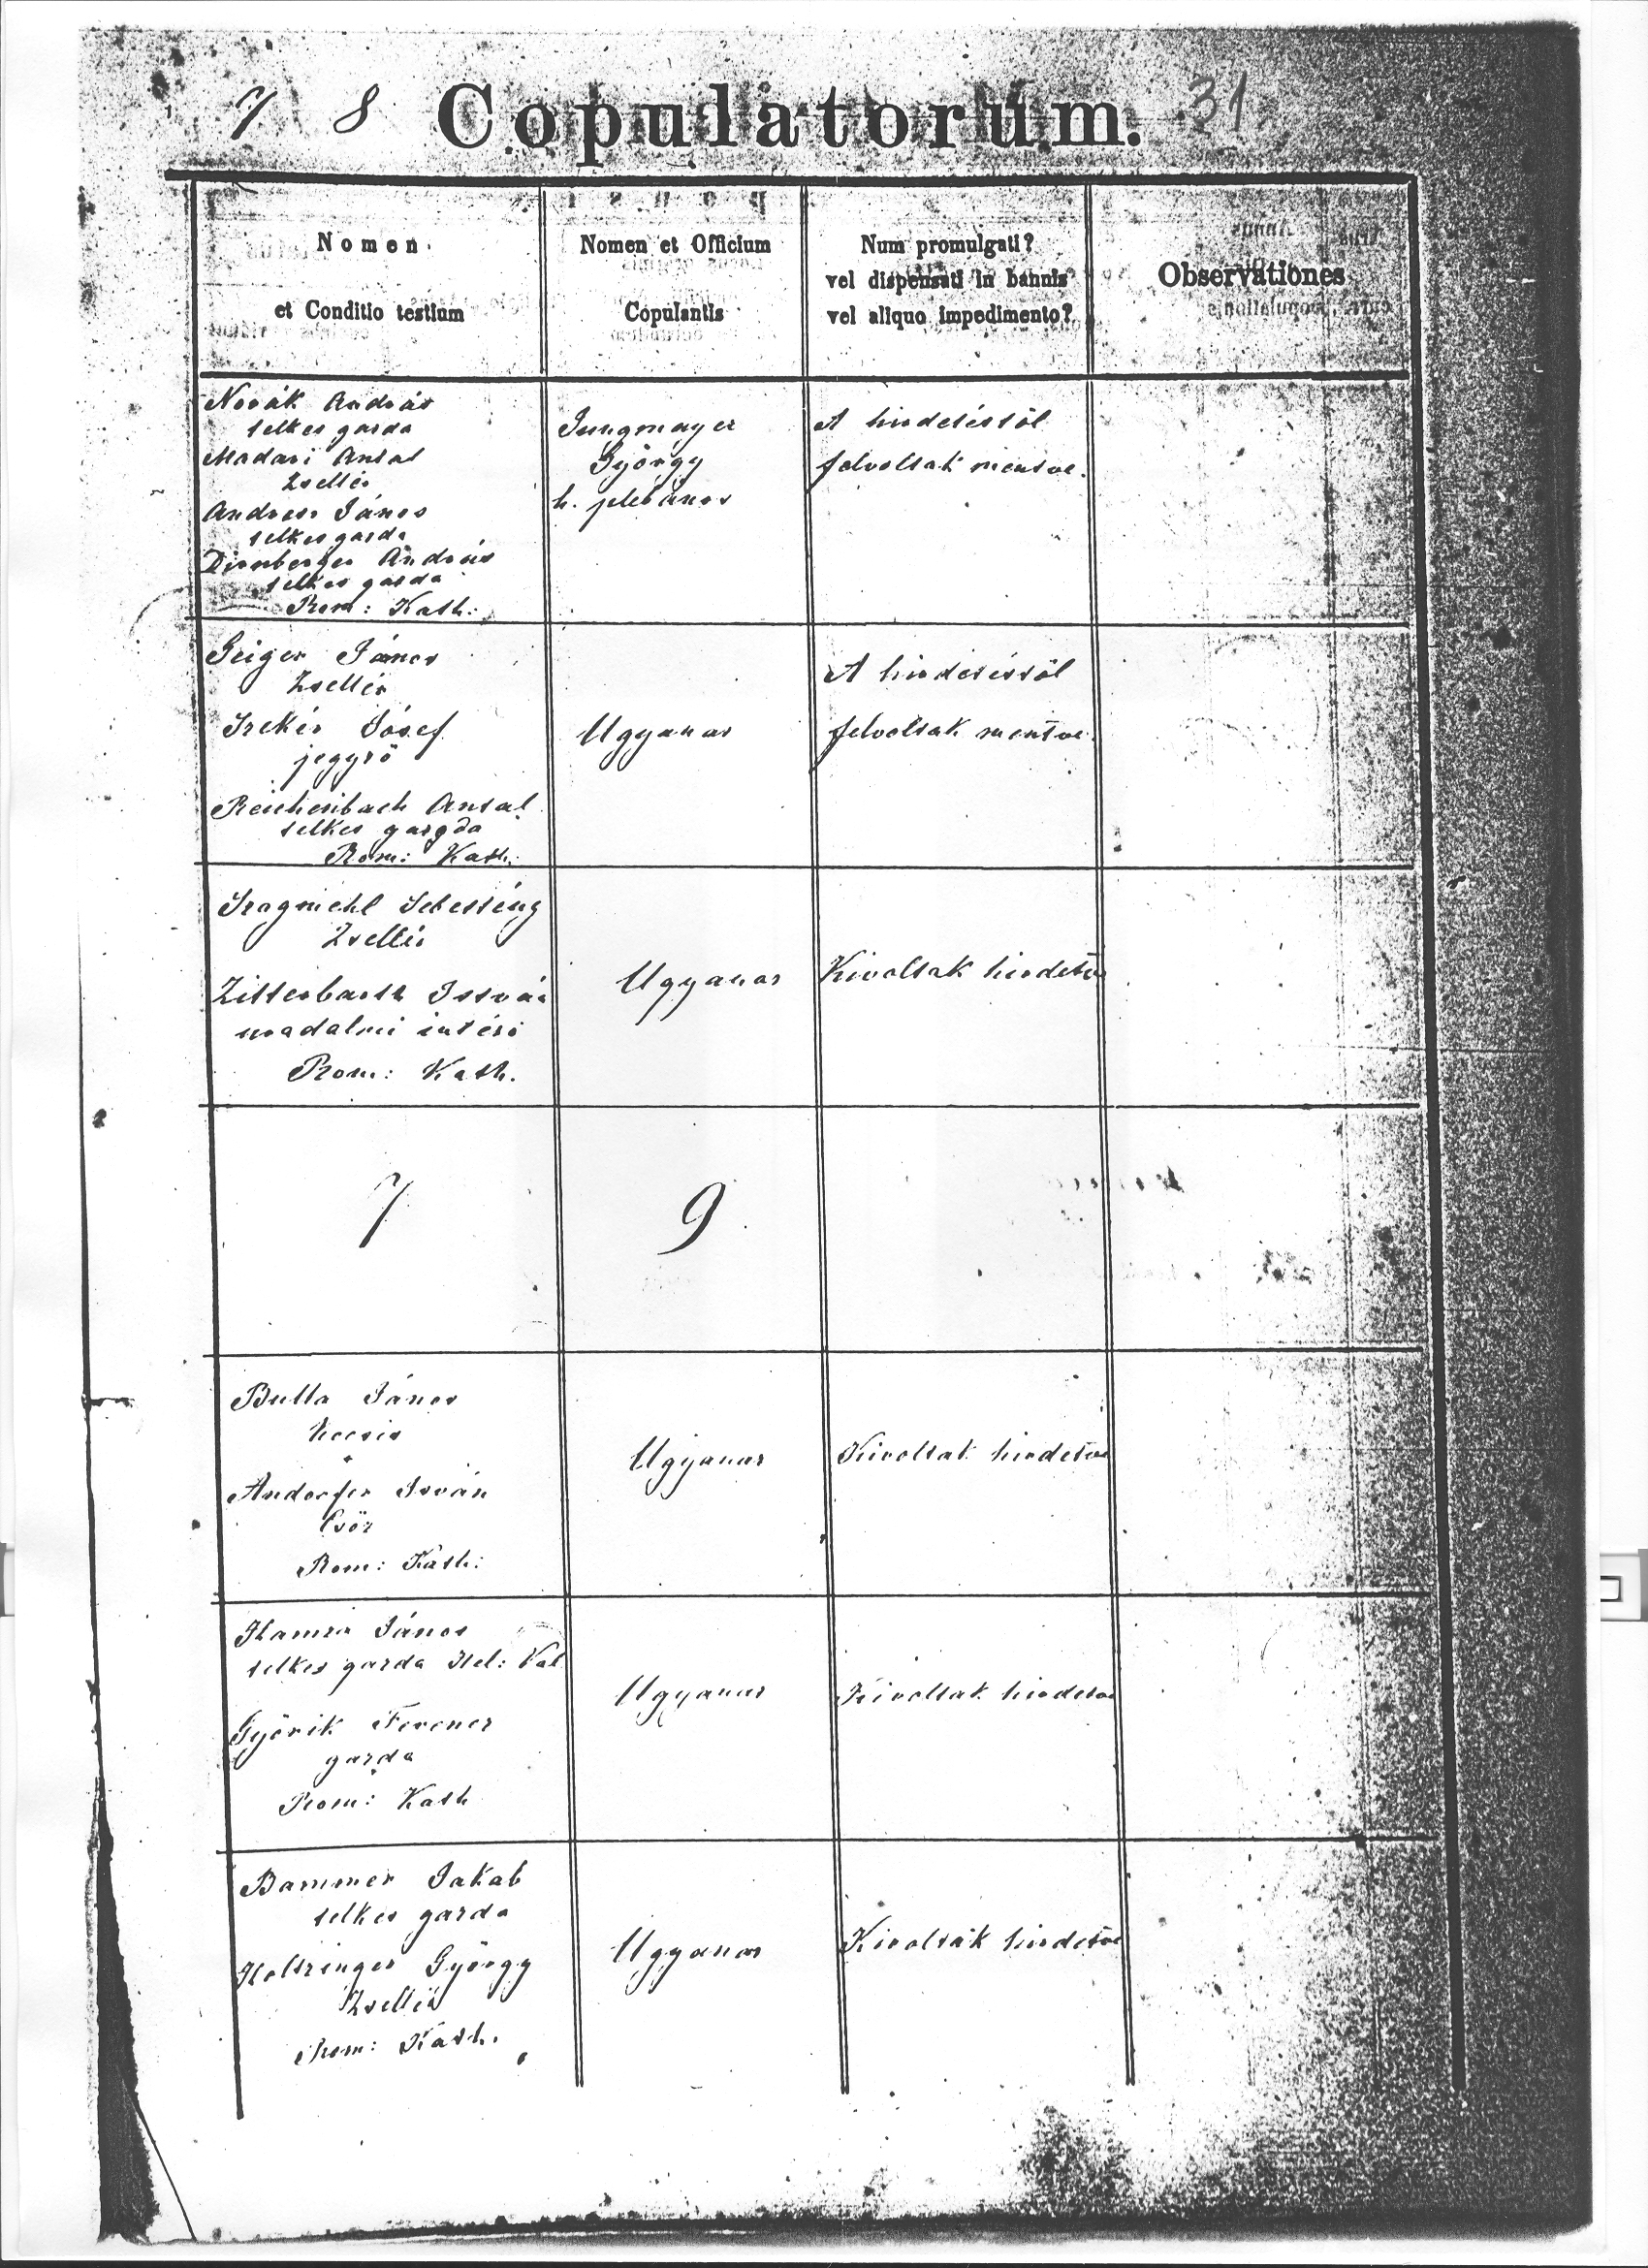 7 8 Copulatorum. 31
Nomen
et Conditio testium
Nomen et Officium
Copulantis
Num promulgati?
vel dispensati in bannis
vel aliquo impedimento?
Observationes
Novák András
telkes gazda
Madari Antal
Zsellér
János
telkes gazda
Dirnberger András
telkes gazda
Rom: Kath:
Jungmayer
György
h. plebános
A hirdetéstöl
felvoltak mentve.
Geiger János
Zsellér
Szekér Jósef
jegyző
Reichenbach Antal
telkes gazda
Rom: Kath:
Ugyanaz
A hirdetéstöl
felvoltak mentve.
Sebestény
Zsellér
Zitterbarth István
uradalmi intéző
Rom: Kath.
Ugyanaz
Kivoltak hirdetve
7 9
Bulla János
kocsis
Andorfer István
Csősz
Rom: Kath:
Ugyanaz
Kivoltak hirdetve
János
telkes gazda Hel: Val
Györik Ferencz
gazda
Rom: Kath
Ugyanaz
Kivoltak hirdetve
Bammer Jakab
telkes gazda
Holtzinger György
Zsellér
Rom: Kath.
Ugyanaz
Kivoltak hirdetve